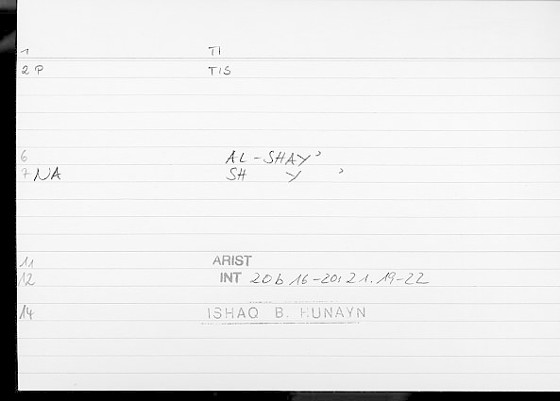 1 TI
2 P TIS
6 AL-SHAY'
7 NA SH Y '
11 ARIST
12 INT 20b 16-20; 21. 19-22
14 ISHAQ B. HUNAYN